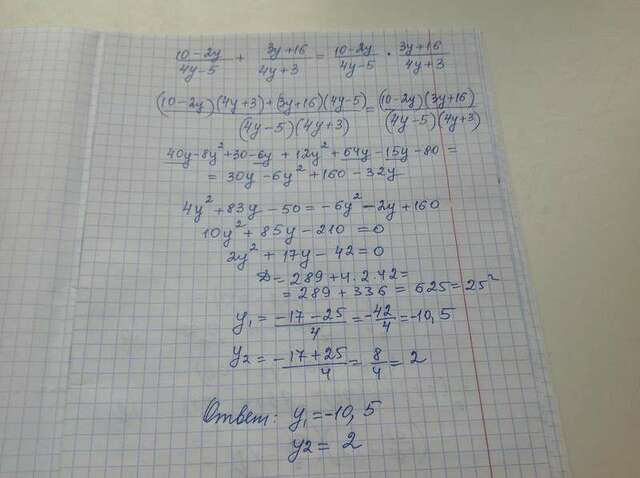 (10-2y)/(4y-5) + (3y+16)/(4y+3) = (10-2y)/(4y-5) · (3y+16)/(4y+3)
((10-2y)(4y+3)+(3y+16)(4y-5))/((4y-5)(4y+3)) = ((10-2y)(3y+16))/((4y-5)(4y+3))
40y-8y²+30-6y+12y²+64y-15y-80=
=30y-6y²+160-32y
4y²+83y-50=-6y²-2y+160
10y²+85y-210=0
2y²+17y-42=0
D=289+4·2·42=
=289+336=625=25²
y₁=(-17-25)/4=-42/4=-10,5
y2=(-17+25)/4=8/4=2
Ответ: y₁=-10,5
y2=2